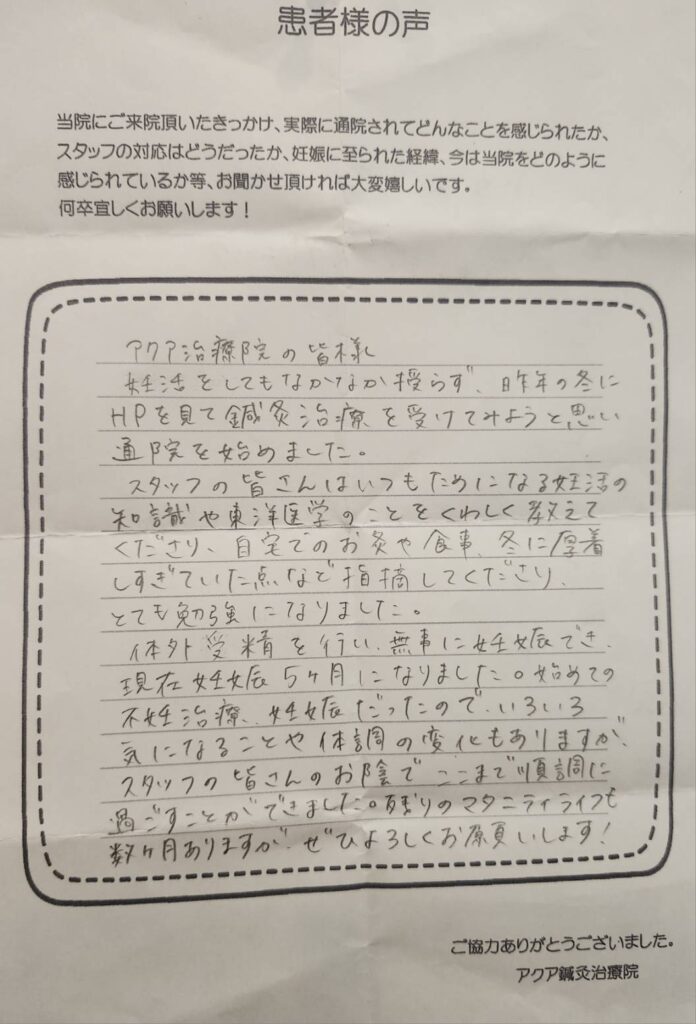 患者様の声
当院にご来院頂いたきっかけ、実際に通院されてどんなことを感じられたか、
スタッフの対応はどうだったか、妊娠に至られた経緯、今は当院をどのように
感じられているか等、お聞かせ頂ければ大変嬉しいです。
何卒宜しくお願いします！
アクア治療院の皆様
妊活をしてもなかなか授らず、昨年の冬に
HPを見て鍼灸治療を受けてみようと思い
通院を始めました。
スタッフの皆さんはいつもためになる妊活の
知識や東洋医学のことをくわしく教えて
くださり、自宅でのお灸や食事、冬に厚着
しすぎていた点など指摘してくださり、
とても勉強になりました。
体外受精を行い、無事に妊娠でき、
現在妊娠5ヶ月になりました。始めての
不妊治療、妊娠だったので、いろいろ
気になることや体調の変化もありますが、
スタッフの皆さんのお陰でここまで順調に
過ごすことができました。残りのマタニティライフも
数ヶ月ありますが、ぜひよろしくお願いします！
ご協力ありがとうございました。
アクア鍼灸治療院